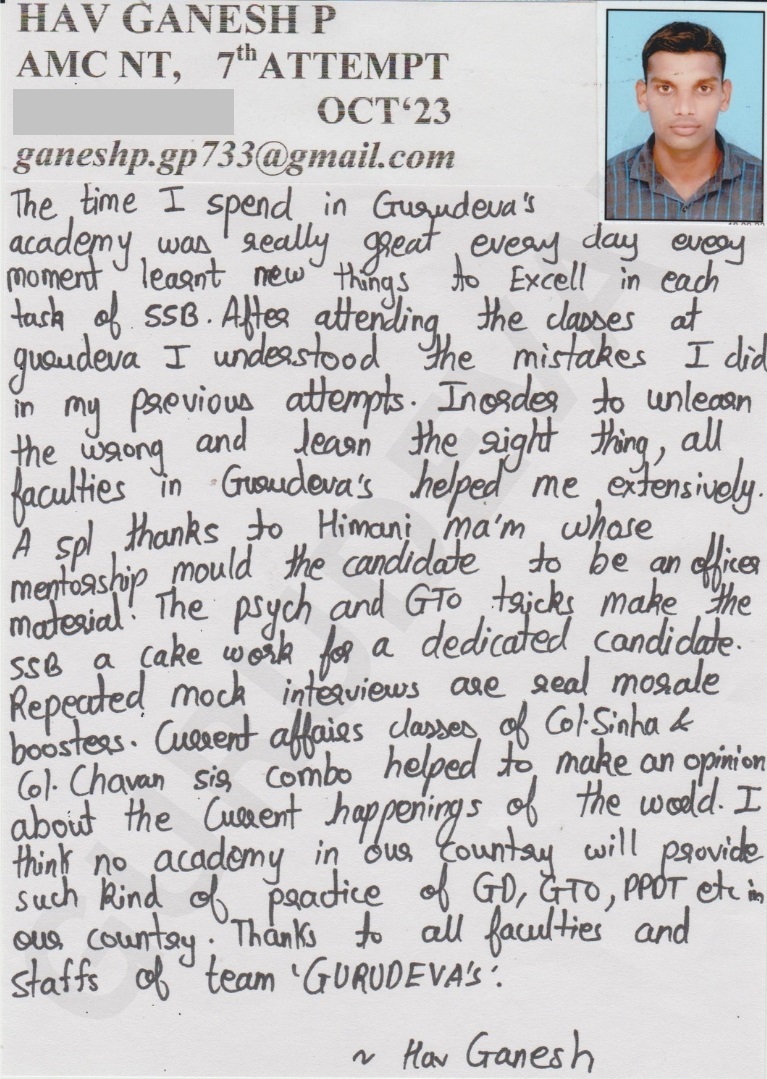 HAV GANESH P
AMC NT, 7th ATTEMPT
OCT‘23
ganeshp.gp733@gmail.com
The time I spend in Gurudeva's
academy was really great every day every
moment learnt new things to Excell in each
task of SSB. After attending the classes at
gurudeva I understood the mistakes I did
in my previous attempts. Inorder to unlearn
the wrong and learn the right thing, all
faculties in Gurudeva's helped me extensively.
A spl thanks to Himani ma'm whose
mentorship mould the candidate to be an officer
material! The psych and GTO tricks make the
SSB a cake work for a dedicated candidate.
Repeated mock interviews are real morale
boosters. Current affairs classes of Col.Sinha &
Col. Chavan sir combo helped to make an opinion
about the Current happenings of the world. I
think no academy in our country will provide
such kind of practice of GD, GTO, PPDT etc in
our country. Thanks to all faculties and
staffs of team 'GURUDEVA's'.
~ Hav Ganesh
GURUDEVA